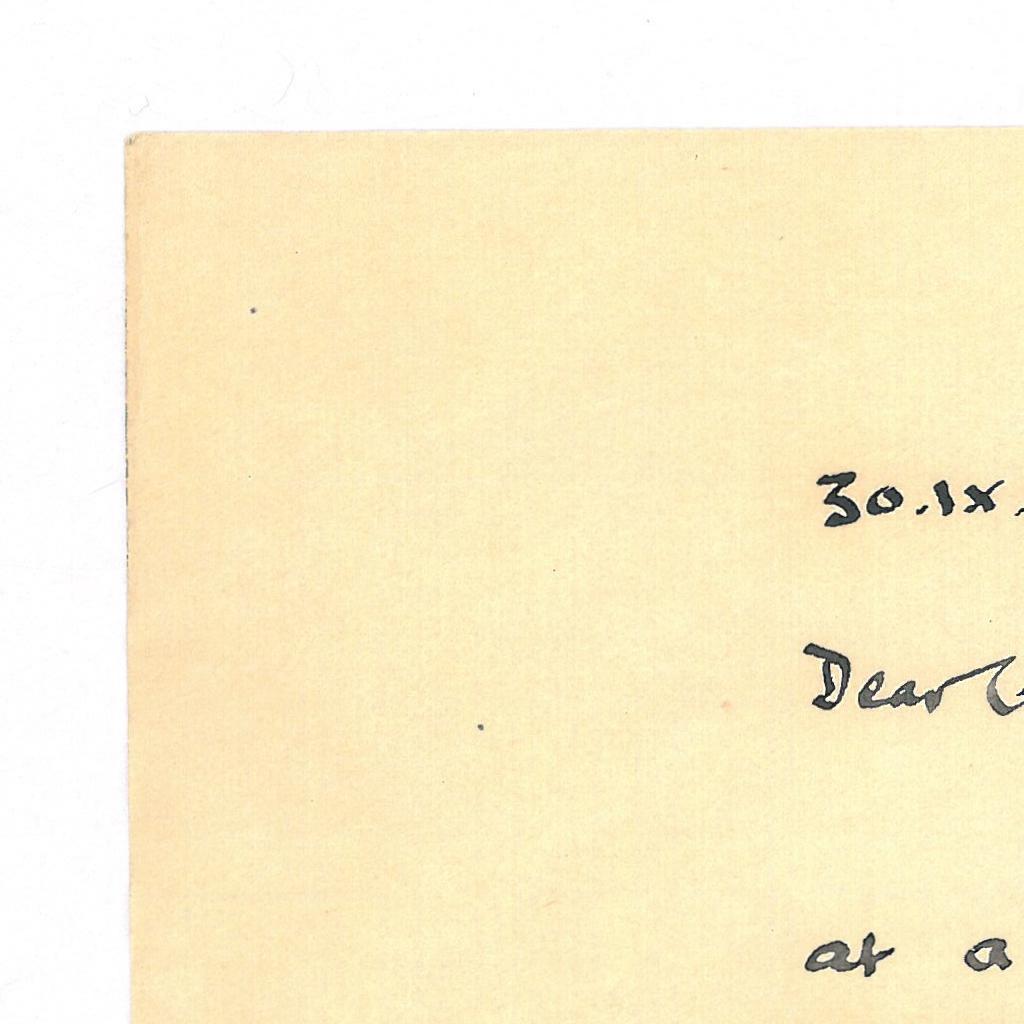 30.IX.
Dear
at a